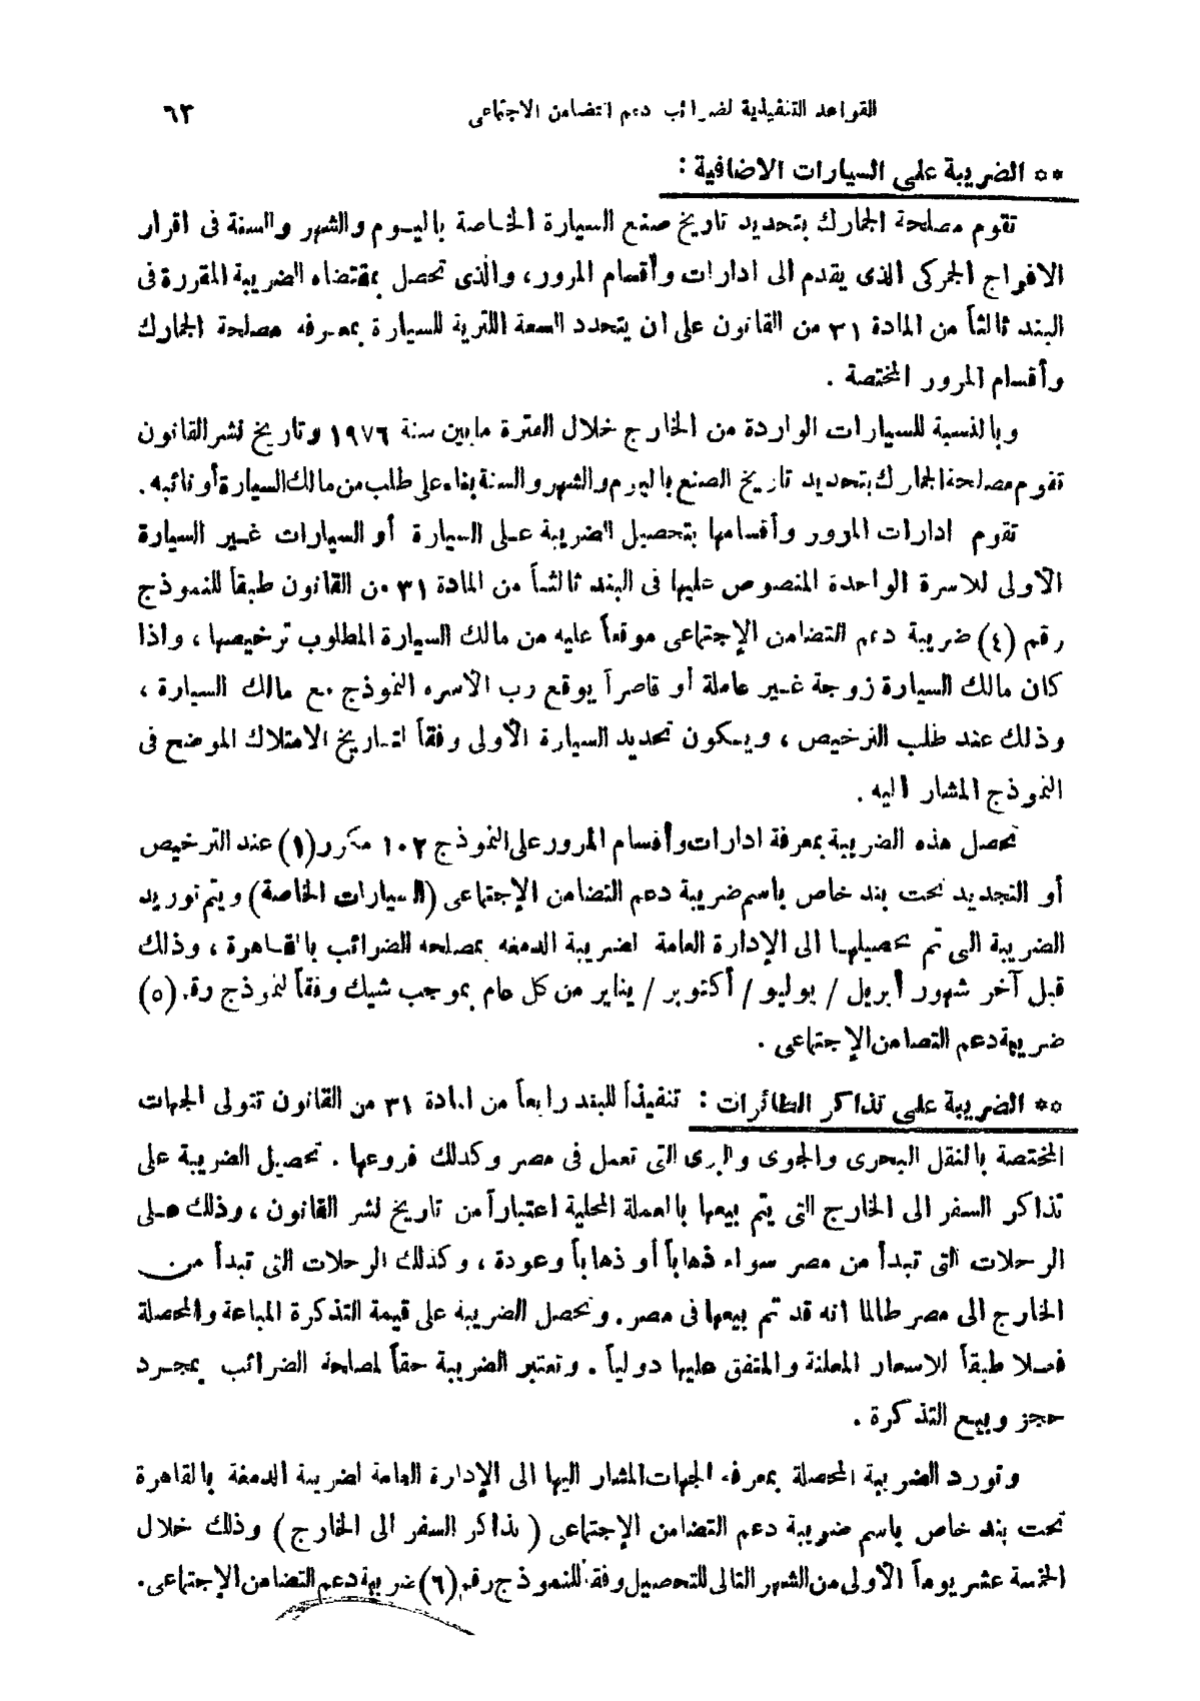 القواعد التنفيذية لضرائب دعم التضامن الاجتماعى ٦٣
** الضريبة على السيارات الاضافية :
تقوم مصلحة الجمارك بتحديد تاريخ صنع السيارة الخاصة باليوم والشهر والسنة فى اقرار
الافراج الجمركى الذى يقدم الى ادارات وأقسام المرور، والذى تحصل بمقتضاه الضريبة المقررة فى
البند ثالثاً من المادة ٣١ من القانون على ان يتحدد السعة اللترية للسيارة بمعرفه مصلحة الجمارك
وأقسام المرور المختصة .
وبالنسبة للسيارات الواردة من الخارج خلال الفترة مابين سنة ١٩٧٦ وتاريخ نشر القانون
تقوم مصلحة الجمارك بتحديد تاريخ الصنع باليوم والشهر والسنة بناء على طلب من مالك السيارة أو نائبه .
تقوم ادارات المرور وأقسامها بتحصيل الضريبة على السيارة أو السيارات غير السيارة
الأولى للاسرة الواحدة المنصوص عليها فى البند ثالثاً من المادة ٣١ من القانون طبقاً للنموذج
رقم (٤) ضريبة دعم التضامن الإجتماعى موقعاً عليه من مالك السيارة المطلوب ترخيصها ، واذا
كان مالك السيارة زوجة غير عاملة أو قاصراً يوقع رب الأسره النموذج مع مالك السيارة ،
وذلك عند طلب الترخيص ، ويكون تحديد السيارة الأولى وفقاً لتاريخ الامتلاك الموضح فى
النموذج المشار اليه .
تحصل هذه الضريبة بمعرفة ادارات وأقسام المرور على النموذج ١٠٢ مكرر (١) عند الترخيص
أو التجديد تحت بند خاص باسم ضريبة دعم التضامن الإجتماعى (السيارات الخاصة) ويتم توريد
الضريبة التى تم تحصيلها الى الإدارة العامة لضريبة الدمغه بمصلحه الضرائب بالقاهرة ، وذلك
قبل آخر شهور أبريل / يوليو / أكتوبر / يناير من كل عام بموجب شيك وفقاً لنموذج رقم (٥)
ضريبة دعم التضامن الإجتماعى .
** الضريبة على تذاكر الطائرات : تنفيذاً للبند رابعاً من المادة ٣١ من القانون تتولى الجهات
المختصة بالنقل البحرى والجوى والبرى التى تعمل فى مصر وكذلك فروعها . تحصيل الضريبة على
تذاكر السفر الى الخارج التى يتم بيعها بالعملة المحلية اعتباراً من تاريخ نشر القانون ، وذلك على
الرحلات التى تبدأ من مصر سواء ذهاباً أو ذهاباً وعودة ، وكذلك الرحلات التى تبدأ من
الخارج الى مصر طالما انه قد تم بيعها فى مصر . وتحصل الضريبة على قيمة التذكرة المباعة والمحصلة
فصلا طبقاً للاسعار المعلنة والمتفق عليها دولياً . وتعتبر الضريبة حقاً لمصلحة الضرائب بمجرد
حجز وبيع التذكرة .
وتورد الضريبة المحصلة بمعرفة الجهات المشار اليها الى الإدارة العامة لضريبة الدمغة بالقاهرة
تحت بند خاص باسم ضريبة دعم التضامن الإجتماعى ( تذاكر السفر الى الخارج ) وذلك خلال
الخمسة عشر يوماً الأولى من الشهر التالى للتحصيل وفقاً للنموذج رقم (٦) ضريبة دعم التضامن الإجتماعى .